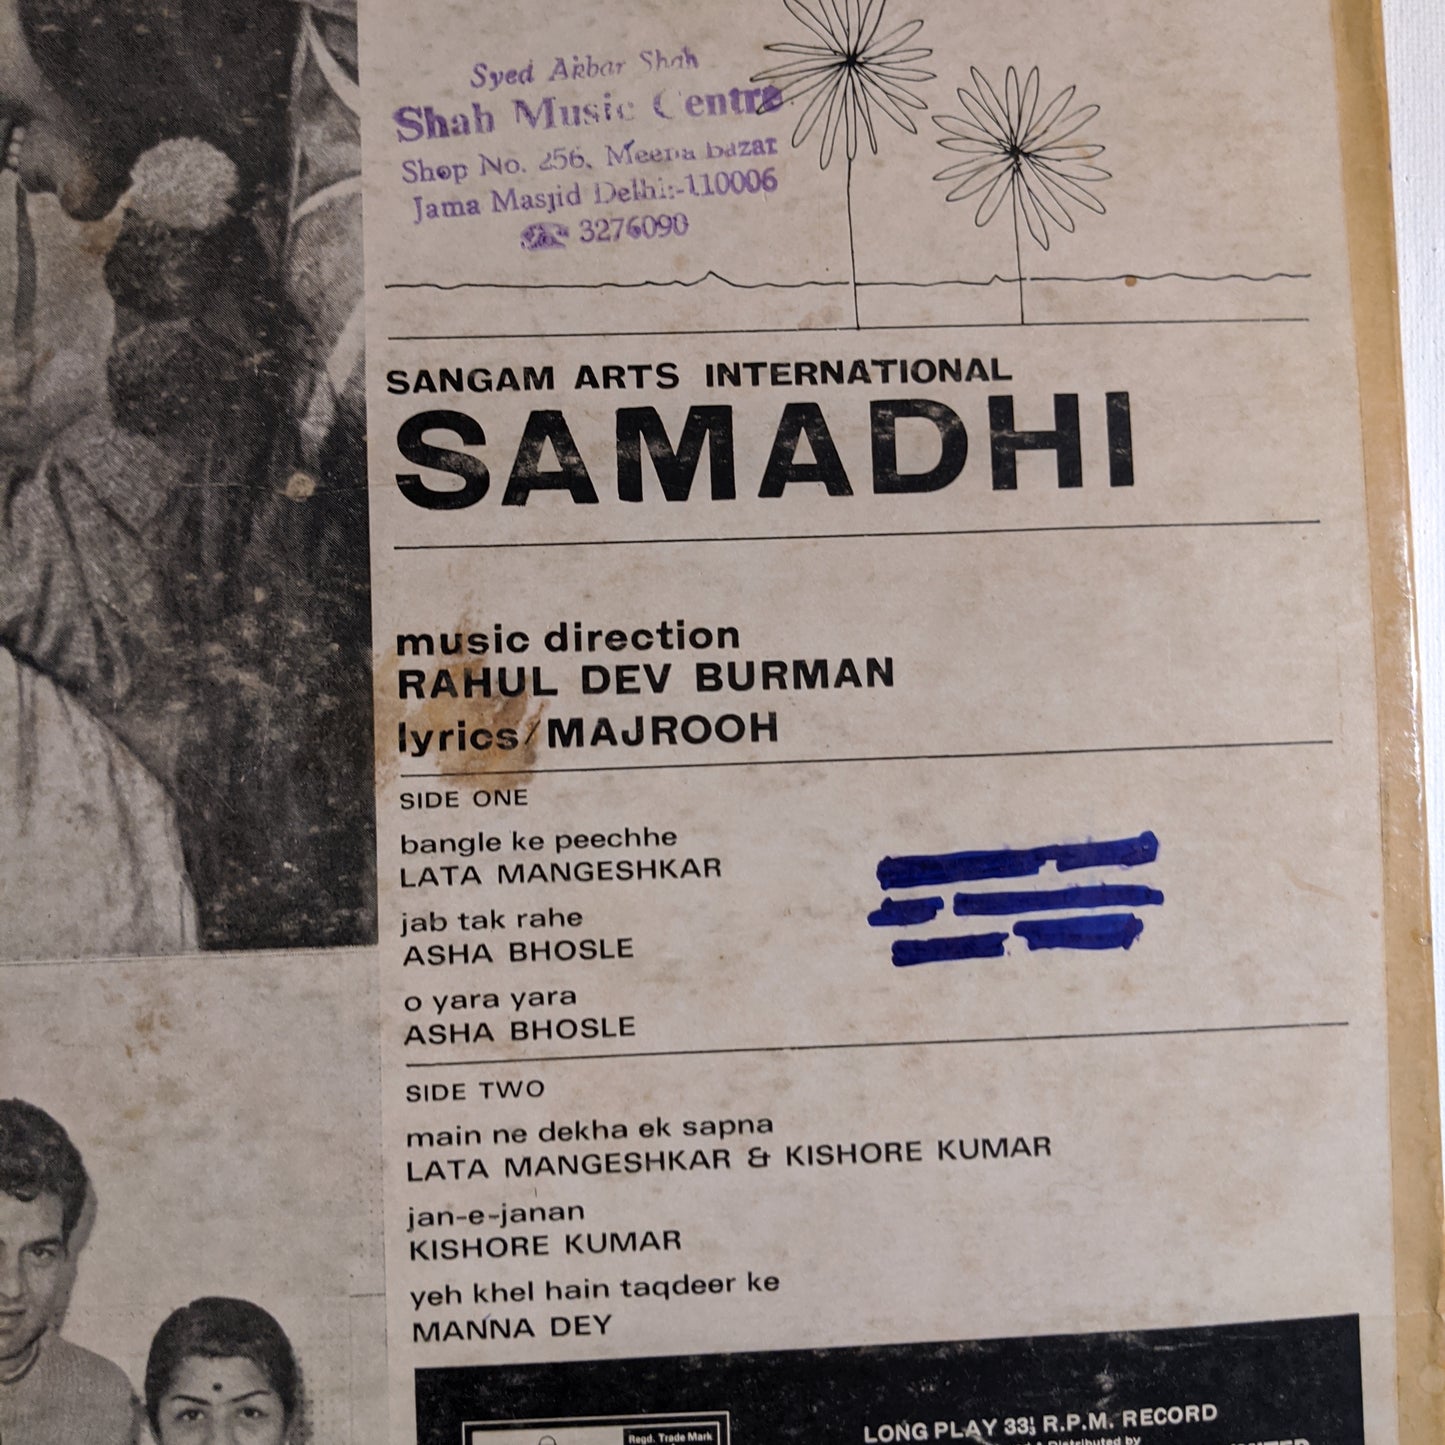 Syed Akbar Shah
Shah Music Centre
Shop No. 256, Meena bazar
Jama Masjid Delhi:-110006
☎ 3276090
SANGAM ARTS INTERNATIONAL
SAMADHI
music direction
RAHUL DEV BURMAN
lyrics/MAJROOH
SIDE ONE
bangle ke peechhe
LATA MANGESHKAR
jab tak rahe
ASHA BHOSLE
o yara yara
ASHA BHOSLE
SIDE TWO
main ne dekha ek sapna
LATA MANGESHKAR & KISHORE KUMAR
jan-e-janan
KISHORE KUMAR
yeh khel hain taqdeer ke
MANNA DEY
Regd. Trade Mark
LONG PLAY 33⅓ R.P.M. RECORD
Distributed by